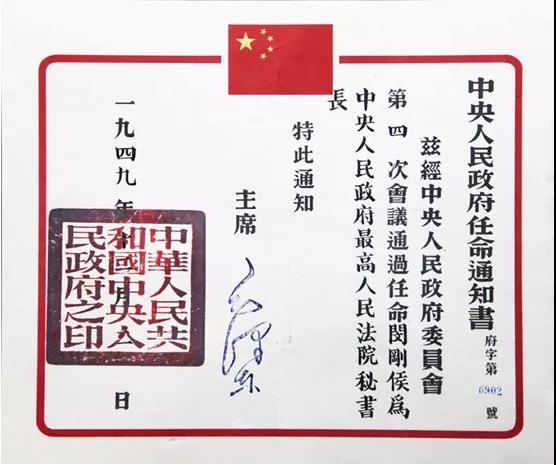 中央人民政府任命通知書
府字第0902號
茲經中央人民政府委員會
第四次會議通過任命閔剛侯爲
中央人民政府最高人民法院秘書
長
特此通知
主席 毛澤東
一九四九年 月 日
中華人民共
和國中央人
民政府之印